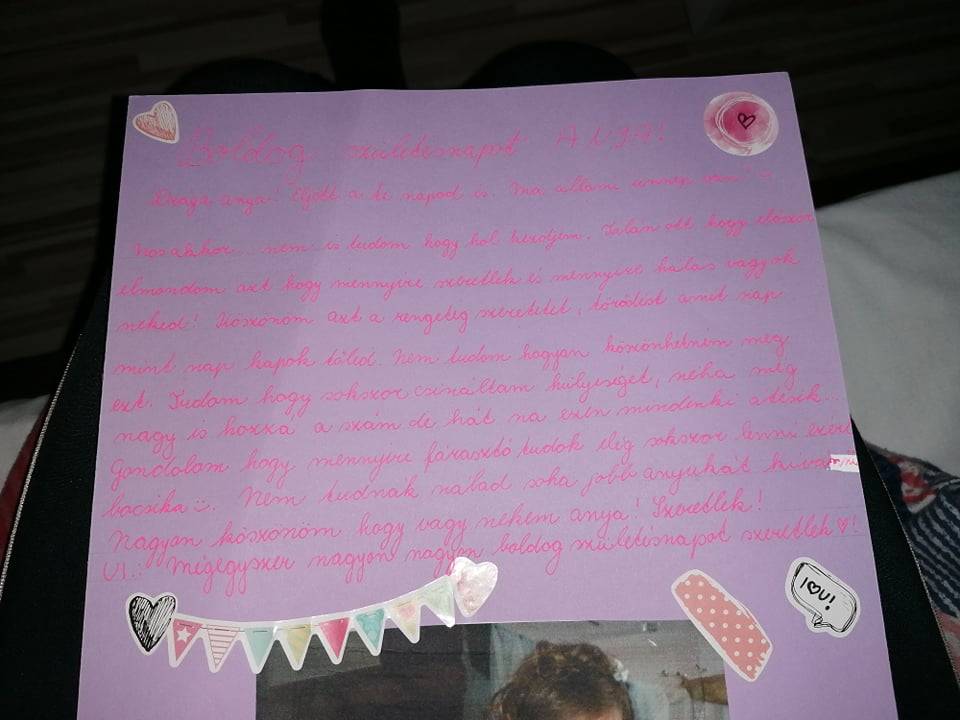 Boldog születésnapot ANYA!
Drága anya! Eljött a te napod is. Ma állami ünnep van! :)
Nos akkor... nem is tudom hogy hol kezdjem. Talán ott hogy először
elmondom azt hogy mennyire szeretlek és mennyire hálás vagyok
neked! Köszönöm azt a rengeteg szeretetet, törődést amit nap
mint nap kapok tőled. Nem tudom hogyan köszönhetném meg
ezt. Tudom hogy sokszor csináltam hülyeséget, néha még
nagy is hozzá a szám de hát na ezen mindenki átesik...
Gondolom hogy mennyire fárasztó tudok elég sokszor lenni ezért
bocsika :). Nem tudnák nálad soha jobb anyukát
Nagyon köszönöm hogy vagy nekem anya! Szeretlek!
UI.: Mégegyszer nagyon nagyon boldog születésnapot szeretlek ♥!
I ♥ U!